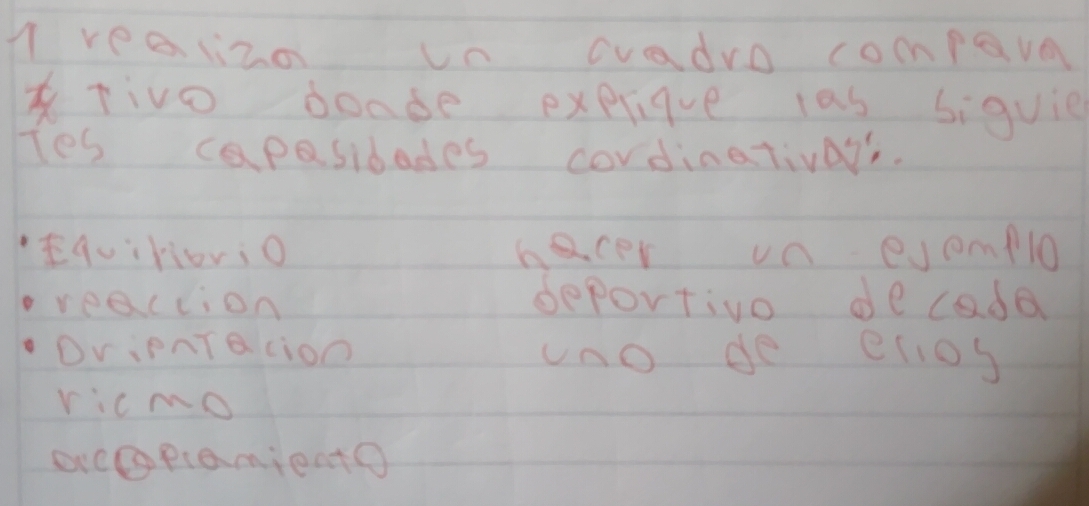 1 realiza un cuadro compara
tivo donde explique las siguie
tes capasidades cordinativas:.
• Equilibrio hacer un ejemplo
• reaccion deportivo de cada
• Orientacion uno de ellos
ricmo
accoplamiento